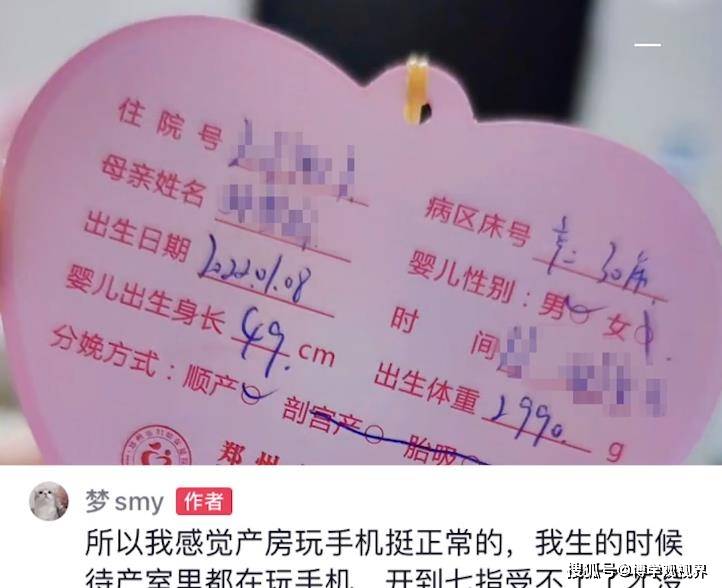 住院号
母亲姓名
病区床号 30床
出生日期 2022.01.08
婴儿性别：男 女
婴儿出生身长 49. cm
时 间
分娩方式：顺产 剖宫产 胎吸
出生体重 2990. g
郑州
梦smy 作者
所以我感觉产房玩手机挺正常的，我生的时候
待产室里都在玩手机，开到七指受不了了才没
搜狐号@博荣观视界